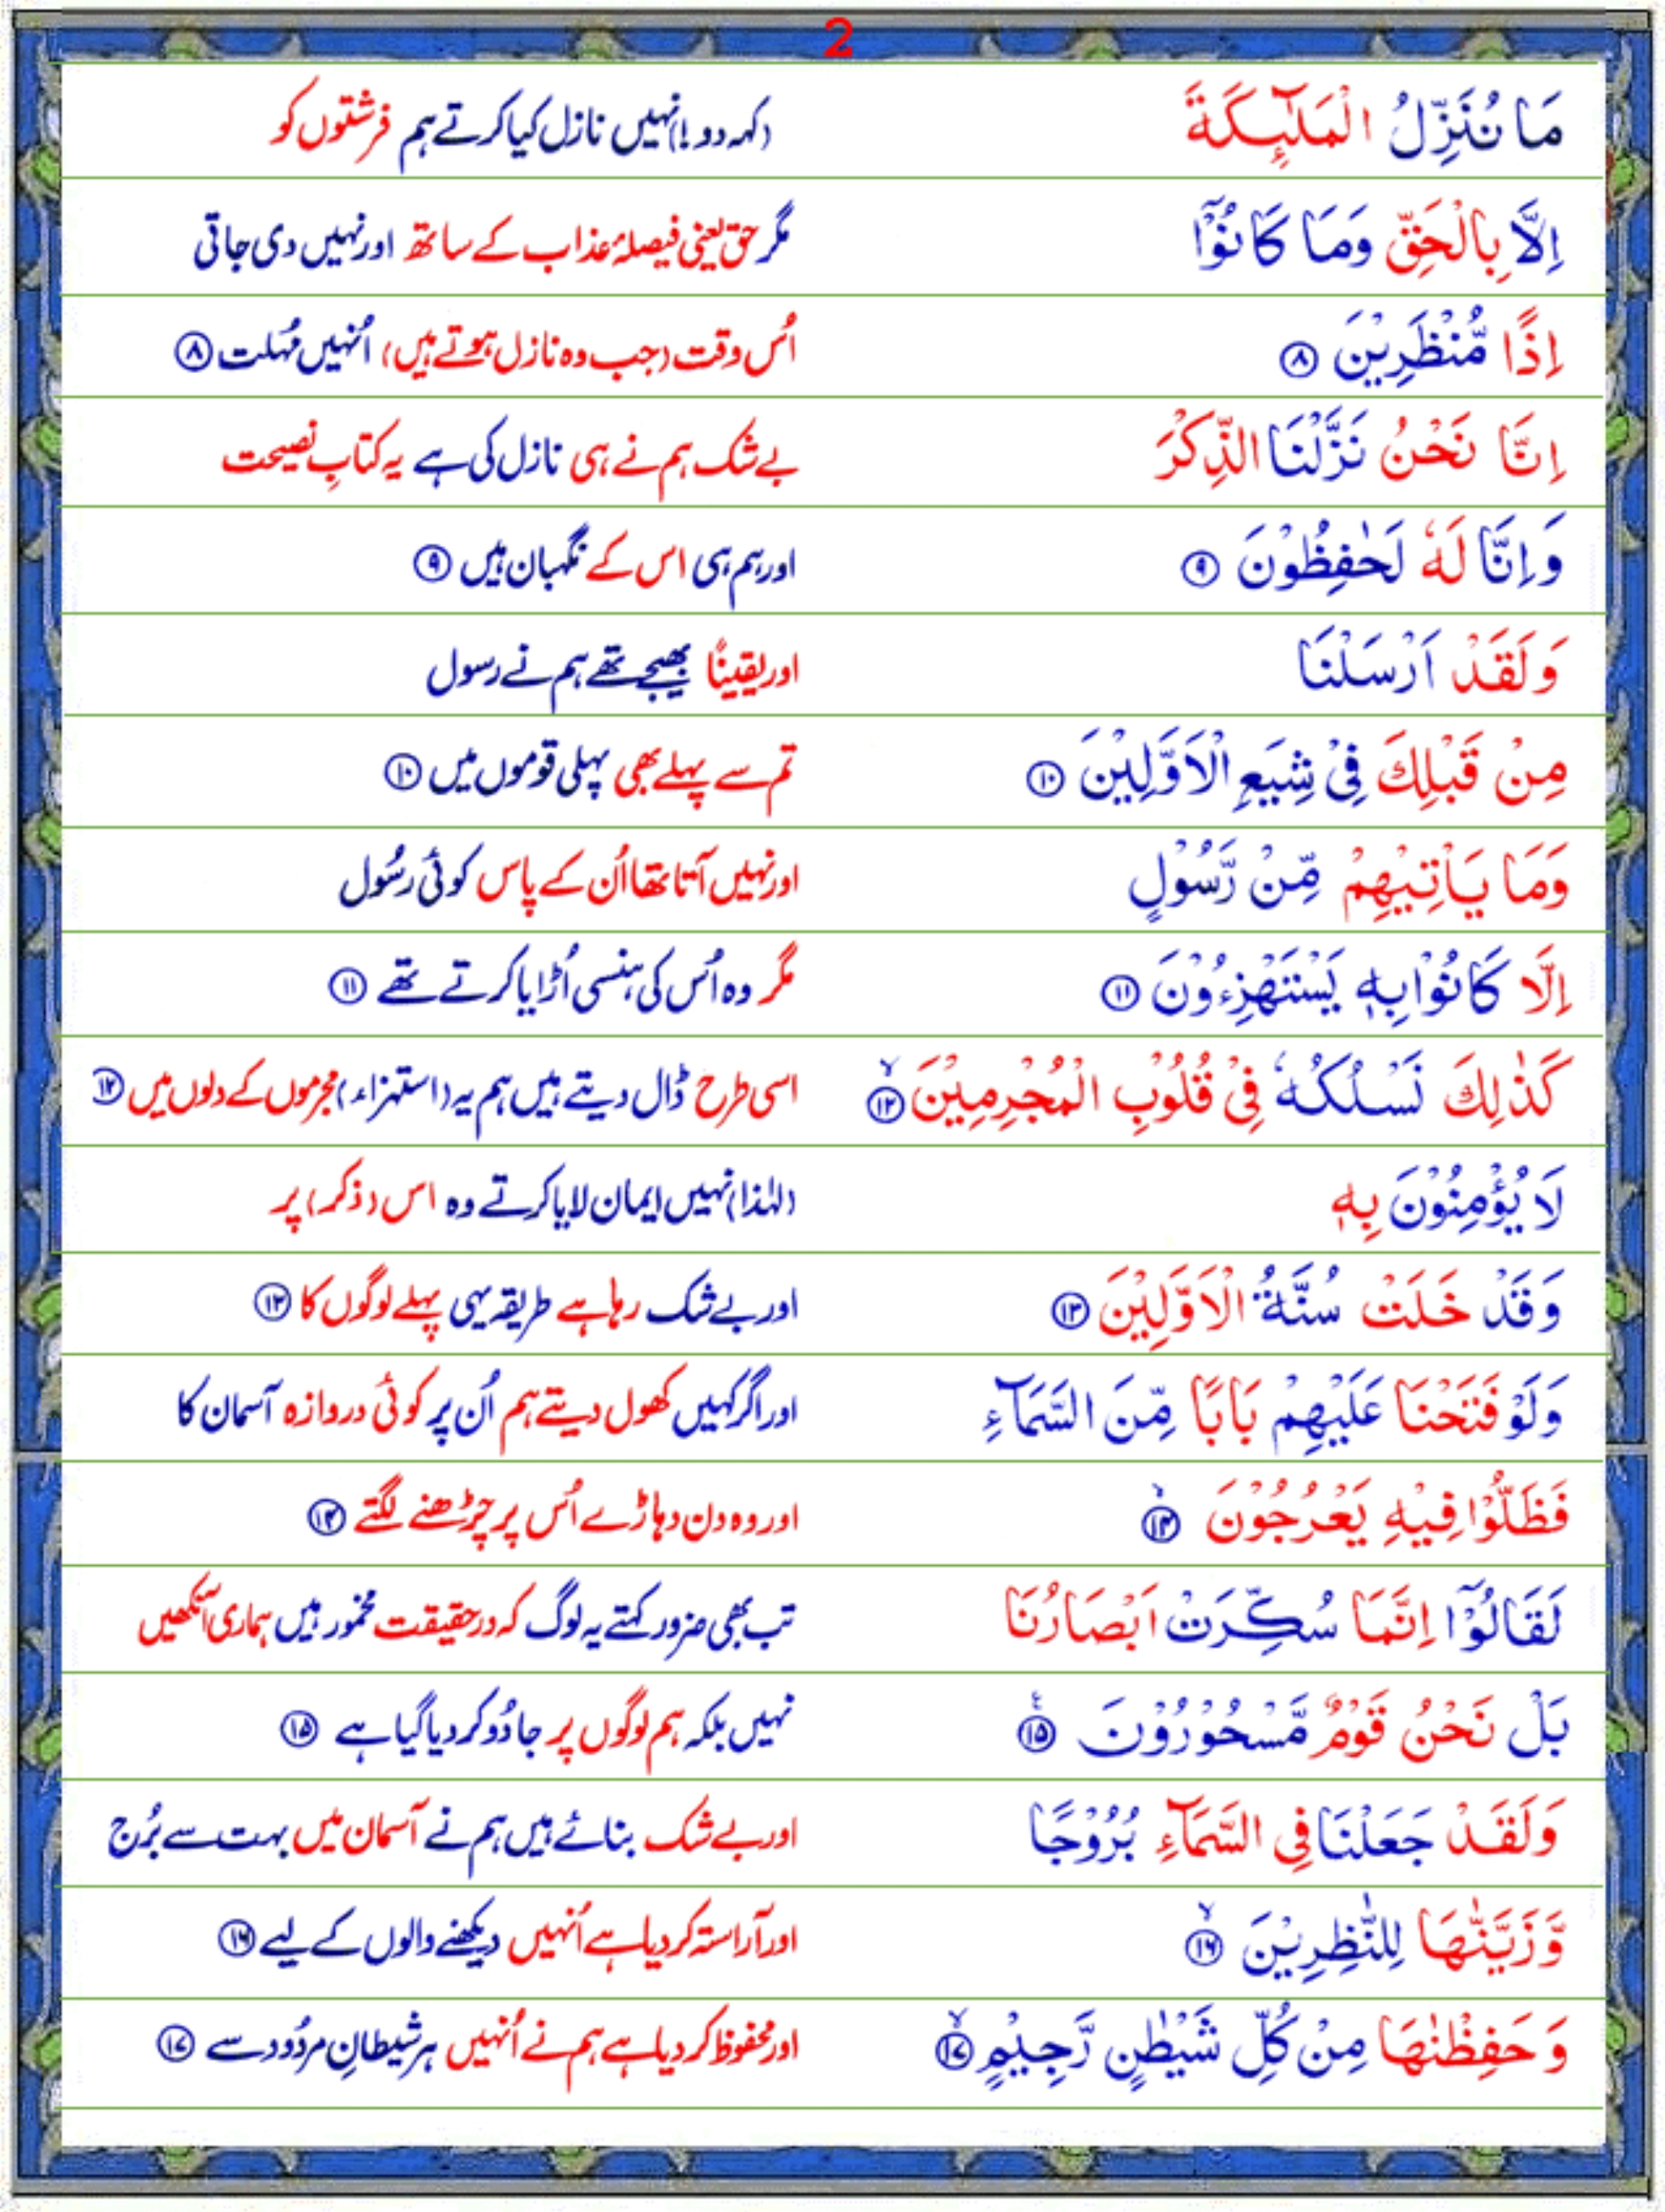 2
مَا نُنَزِّلُ الْمَلٰٓئِكَةَ (کہہ دو!) نہیں نازل کیا کرتے ہم فرشتوں کو
اِلَّا بِالْحَقِّ وَمَا كَانُوْٓا مگر حق یعنی فیصلۂ عذاب کے ساتھ اور نہیں دی جاتی
اِذًا مُّنْظَرِيْنَ ۸ اُس وقت (جب وہ نازل ہوتے ہیں) اُنہیں مُہلت ۸
اِنَّا نَحْنُ نَزَّلْنَا الذِّكْرَ بے شک ہم نے ہی نازل کی ہے یہ کتابِ نصیحت
وَاِنَّا لَهٗ لَحٰفِظُوْنَ ۹ اور ہم ہی اس کے نگہبان ہیں ۹
وَلَقَدْ اَرْسَلْنَا اور یقیناً بھیجے تھے ہم نے رسول
مِنْ قَبْلِكَ فِيْ شِيَعِ الْاَوَّلِيْنَ ۱۰ تم سے پہلے بھی پہلی قوموں میں ۱۰
وَمَا يَاْتِيْهِمْ مِّنْ رَّسُوْلٍ اور نہیں آتا تھا اُن کے پاس کوئی رسُول
اِلَّا كَانُوْا بِهٖ يَسْتَهْزِءُوْنَ ۱۱ مگر وہ اُس کی ہنسی اُڑایا کرتے تھے ۱۱
كَذٰلِكَ نَسْلُكُهٗ فِيْ قُلُوْبِ الْمُجْرِمِيْنَ ۙ۱۲ اسی طرح ڈال دیتے ہیں ہم یہ (استہزاء) مجرموں کے دلوں میں ۱۲
لَا يُؤْمِنُوْنَ بِهٖ (لہٰذا) نہیں ایمان لایا کرتے وہ اس (ذکر) پر
وَقَدْ خَلَتْ سُنَّةُ الْاَوَّلِيْنَ ۱۳ اور بے شک رہا ہے طریقہ یہی پہلے لوگوں کا ۱۳
وَلَوْ فَتَحْنَا عَلَيْهِمْ بَابًا مِّنَ السَّمَآءِ اور اگر کہیں کھول دیتے ہم اُن پر کوئی دروازہ آسمان کا
فَظَلُّوْا فِيْهِ يَعْرُجُوْنَ ۙ۱۴ اور وہ دن دہاڑے اُس پر چڑھنے لگتے ۱۴
لَقَالُوْٓا اِنَّمَا سُكِّرَتْ اَبْصَارُنَا تب بھی ضرور کہتے یہ لوگ کہ درحقیقت مخمور ہیں ہماری آنکھیں
بَلْ نَحْنُ قَوْمٌ مَّسْحُوْرُوْنَ ۱۵ۧ نہیں بلکہ ہم لوگوں پر جادُو کر دیا گیا ہے ۱۵
وَلَقَدْ جَعَلْنَا فِي السَّمَآءِ بُرُوْجًا اور بے شک بنائے ہیں ہم نے آسمان میں بہت سے بُرج
وَّزَيَّنّٰهَا لِلنّٰظِرِيْنَ ۙ۱۶ اور آراستہ کر دیا ہے اُنہیں دیکھنے والوں کے لیے ۱۶
وَحَفِظْنٰهَا مِنْ كُلِّ شَيْطٰنٍ رَّجِيْمٍ ۙ۱۷ اور محفوظ کر دیا ہے ہم نے اُنہیں ہر شیطانِ مردُود سے ۱۷